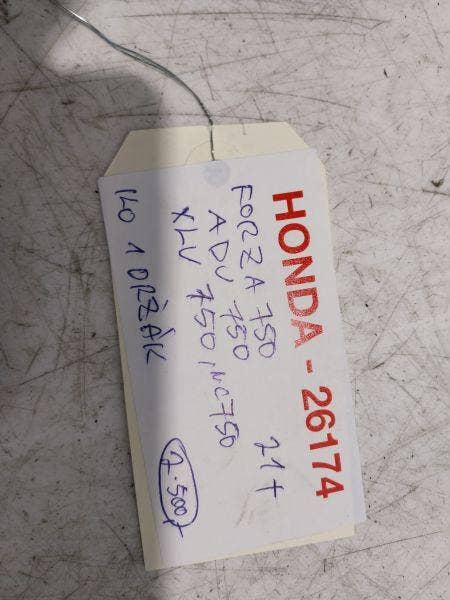 HONDA - 26174
FORZA 750 21+
ADV 750
XLV 750, NC750
1 DRŽÁK